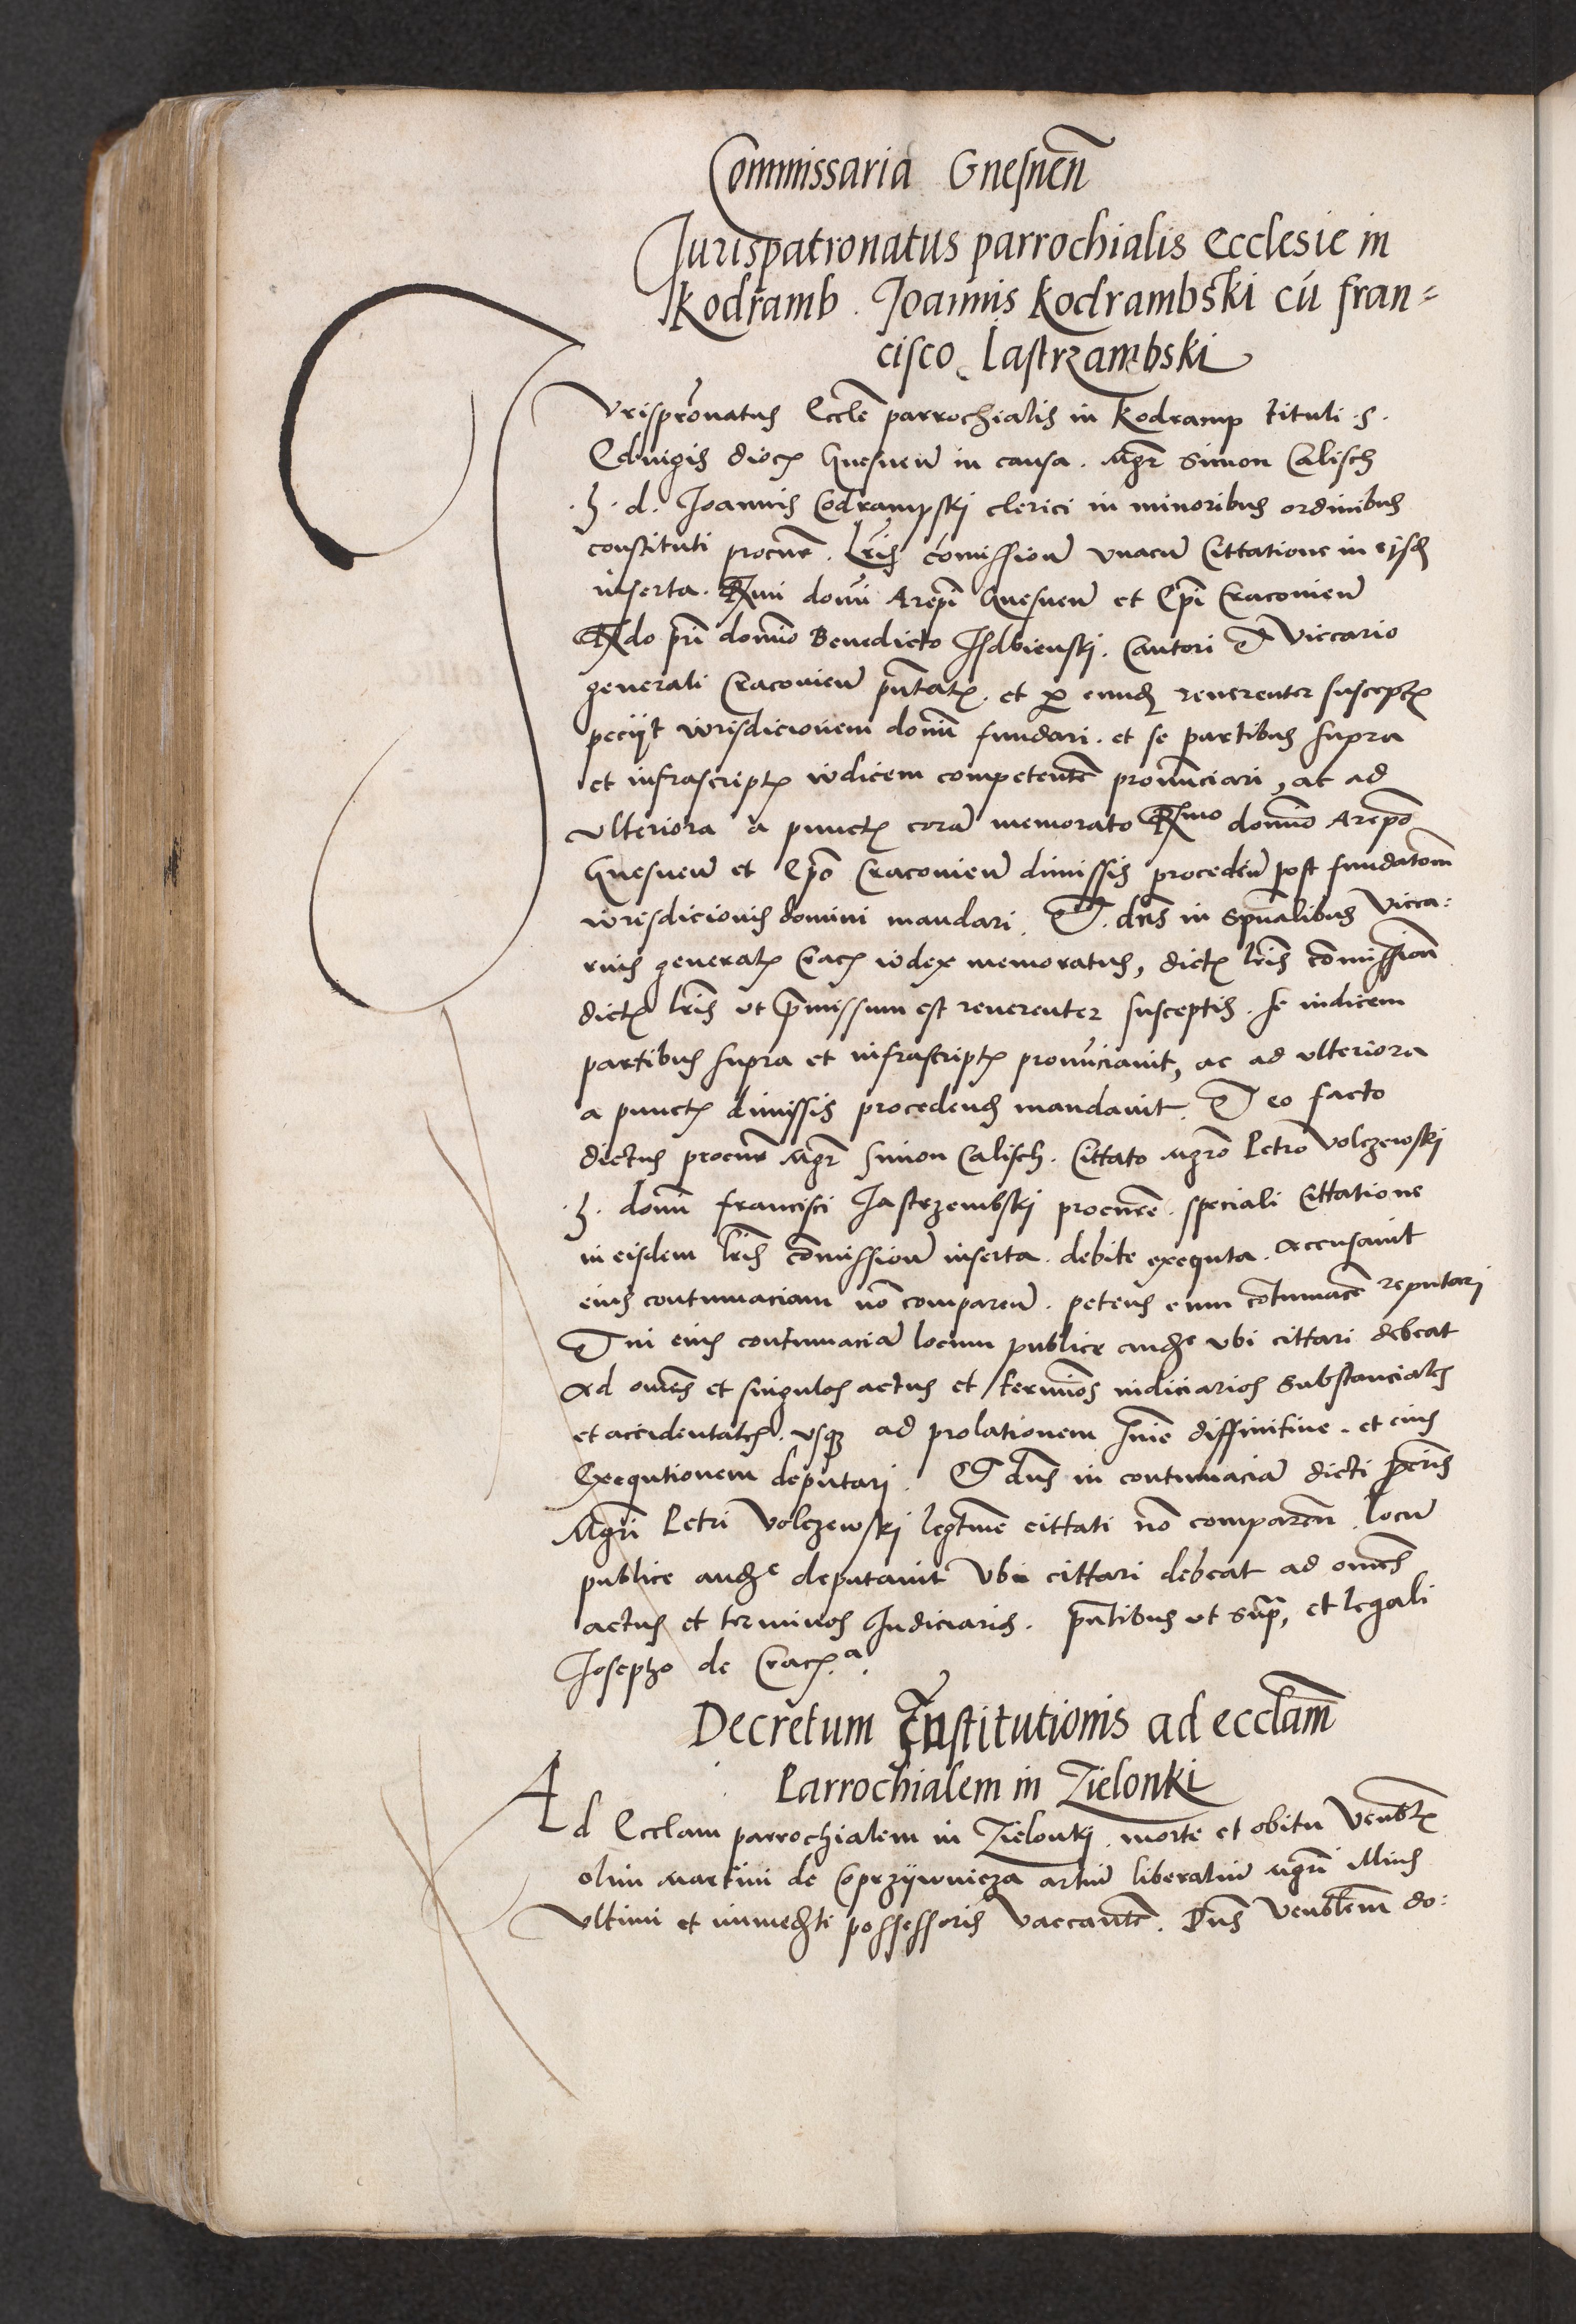 Commissaria Gnesnen̄
Jurispatronatus parrochialis Ecclesie in
Kodramb. Joannis Kodrambski cū fran=
cisco Iastrzambski
Jvrisprōnatus Eccłe parrochialis in Kodramp tituli .S.
Edvigis dioc̄ Gnesnen̄ in causa. Mgr̄ Simon Calisch
.h. d. Joannis Codrampskj clerici in minoribus ordinibus
constituti procur̄. Lr̄is Comission̄ vnacū Cittatione in eisđ
inserta. Rm̄i domī Arepī Gnesnen̄ et Epī Cracovien̄
Rdo prī domīo Benedicto Isdbienskj. Cantori et Viccario
generali Cracovien̄ pn̄tat̄. et per eundē reverenter suscept̄
peciyt iurisdicionem domī fundari. et se partibus supra
et infrascript̄ iudicem competentē pronūnciari, ac ad
vlteriora a punct̄ corā memorato Rmo domīo Arepō
Gnesnen̄ et Epō Cracovien̄ dimissis proceden̄ post fundatōm
iurisdicionis domini mandari. Et dn̄s in spūalibus Vicca:
rius general̄ Crac̄ iudex memoratus, dict̄ lr̄is comission̄
dict̄ lr̄is ut p̄missum est reverenter susceptis. se iudicem
partibus supra et infrascript̄ pronūciavit, ac ad vlteriora
a punct̄ dimissis procedenđ mandavit. Et eo facto
dictus procur̄ Mgr̄ Simon Calisch. Cittato Mgrō Petro Volczewskj
.h. domī francisci Jastrzembskj procurē. speciali Cittatione
in eisdem lr̄is comission̄ inserta. debite exequta. accusavit
eius contumaciam nō comparen̄. petens eum cōtumacē reputari
Et in eius contumaciā locum publice audē vbi cittari debeat
ad omēs et singulos actus et termīos iudiciarios substanciales
et accidentales. vsq3 ad prolationem snīe diffinitive. et eius
Exequtionem deputari. Et dn̄s in contumaciā dicti pcrīs
Mgrī Petri Volczewskj legtīme cittati nō comparen̄ locū
publice audē deputavit Vbi cittari debeat ad omēs
actus et terminos Iudiciarios. pn̄tibus ut supr̄, et legali
Josepho de Crac̄.a.
Decretum Institutionis ad ecclām
Parrochialem in Zielonki
Ad Ecclam parrochialem in Zielonkj. morte et obitu Venbl̄
olim Martini de Coprzijwnicza artiū liberaliū Mgrī illius
Vltimi et immedti possessoris Vaccantē. Dn̄s Venblem̄ do: